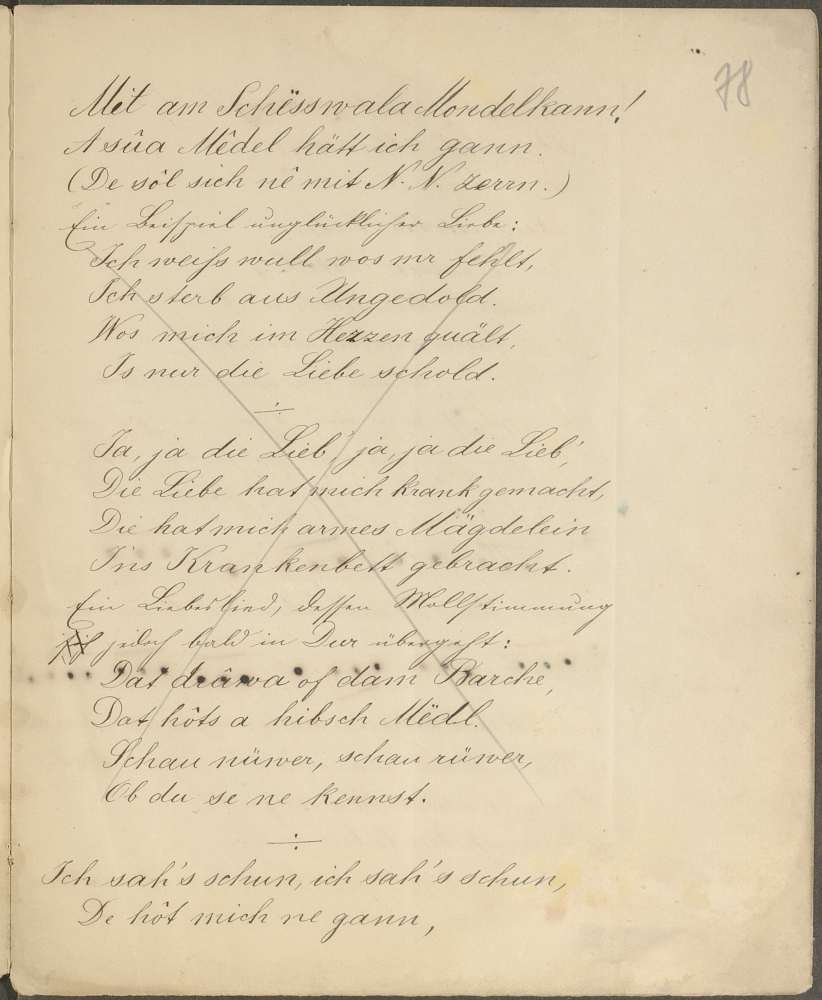 78
Mit am Schësswala Mondelkann!
A sûa Mêdel hätt ich gann.
(De sôl sich nê mit N. N. zerrn.)
Ein Beispiel unglücklicher Liebe:
Ich weiß wull wos mr fehlt,
Ich sterb aus Ungedold.
Wos mich im Herzen quält,
Is nur die Liebe schold.
Ja, ja die Lieb', ja, ja die Lieb',
Die Liebe hat mich krank gemacht,
Die hat mich armes Mägdelein
In's Krankenbett gebracht.
Ein Liebeslied, dessen Mollstimmung
jedoch bald in Dur übergeht:
Dat drâwa of dam Barche,
Dat hôts a hibsch Mëdl.
Schau nüwer, schau rüwer,
Ob du se ne kennst.
Ich sah's schun, ich sah's schun,
De hôt mich ne gann,